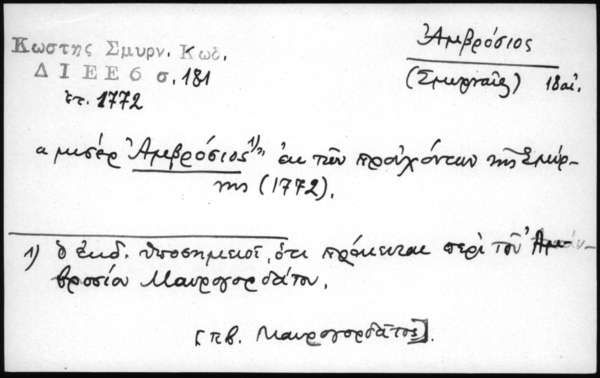 Κωστης Σμυρν. Κωδ.
Δ Ι Ε Ε 6 σ. 181
ἐτ. 1772
Ἀμβρόσιος
(Σμυρναῖος) 18 αἰ.
α μισέρ Ἀμβρόσιος¹⁾" ἐκ τῶν προὐχόντων τῆς Σμύρ-
νης (1772).
1) ὁ ἐκδ. ὑποσημειοῖ, ὅτι πρόκειται περὶ τοῦ Ἀμ-
βροσίου Μαυρογορδάτου.
[πβ. Μαυρογορδάτος].